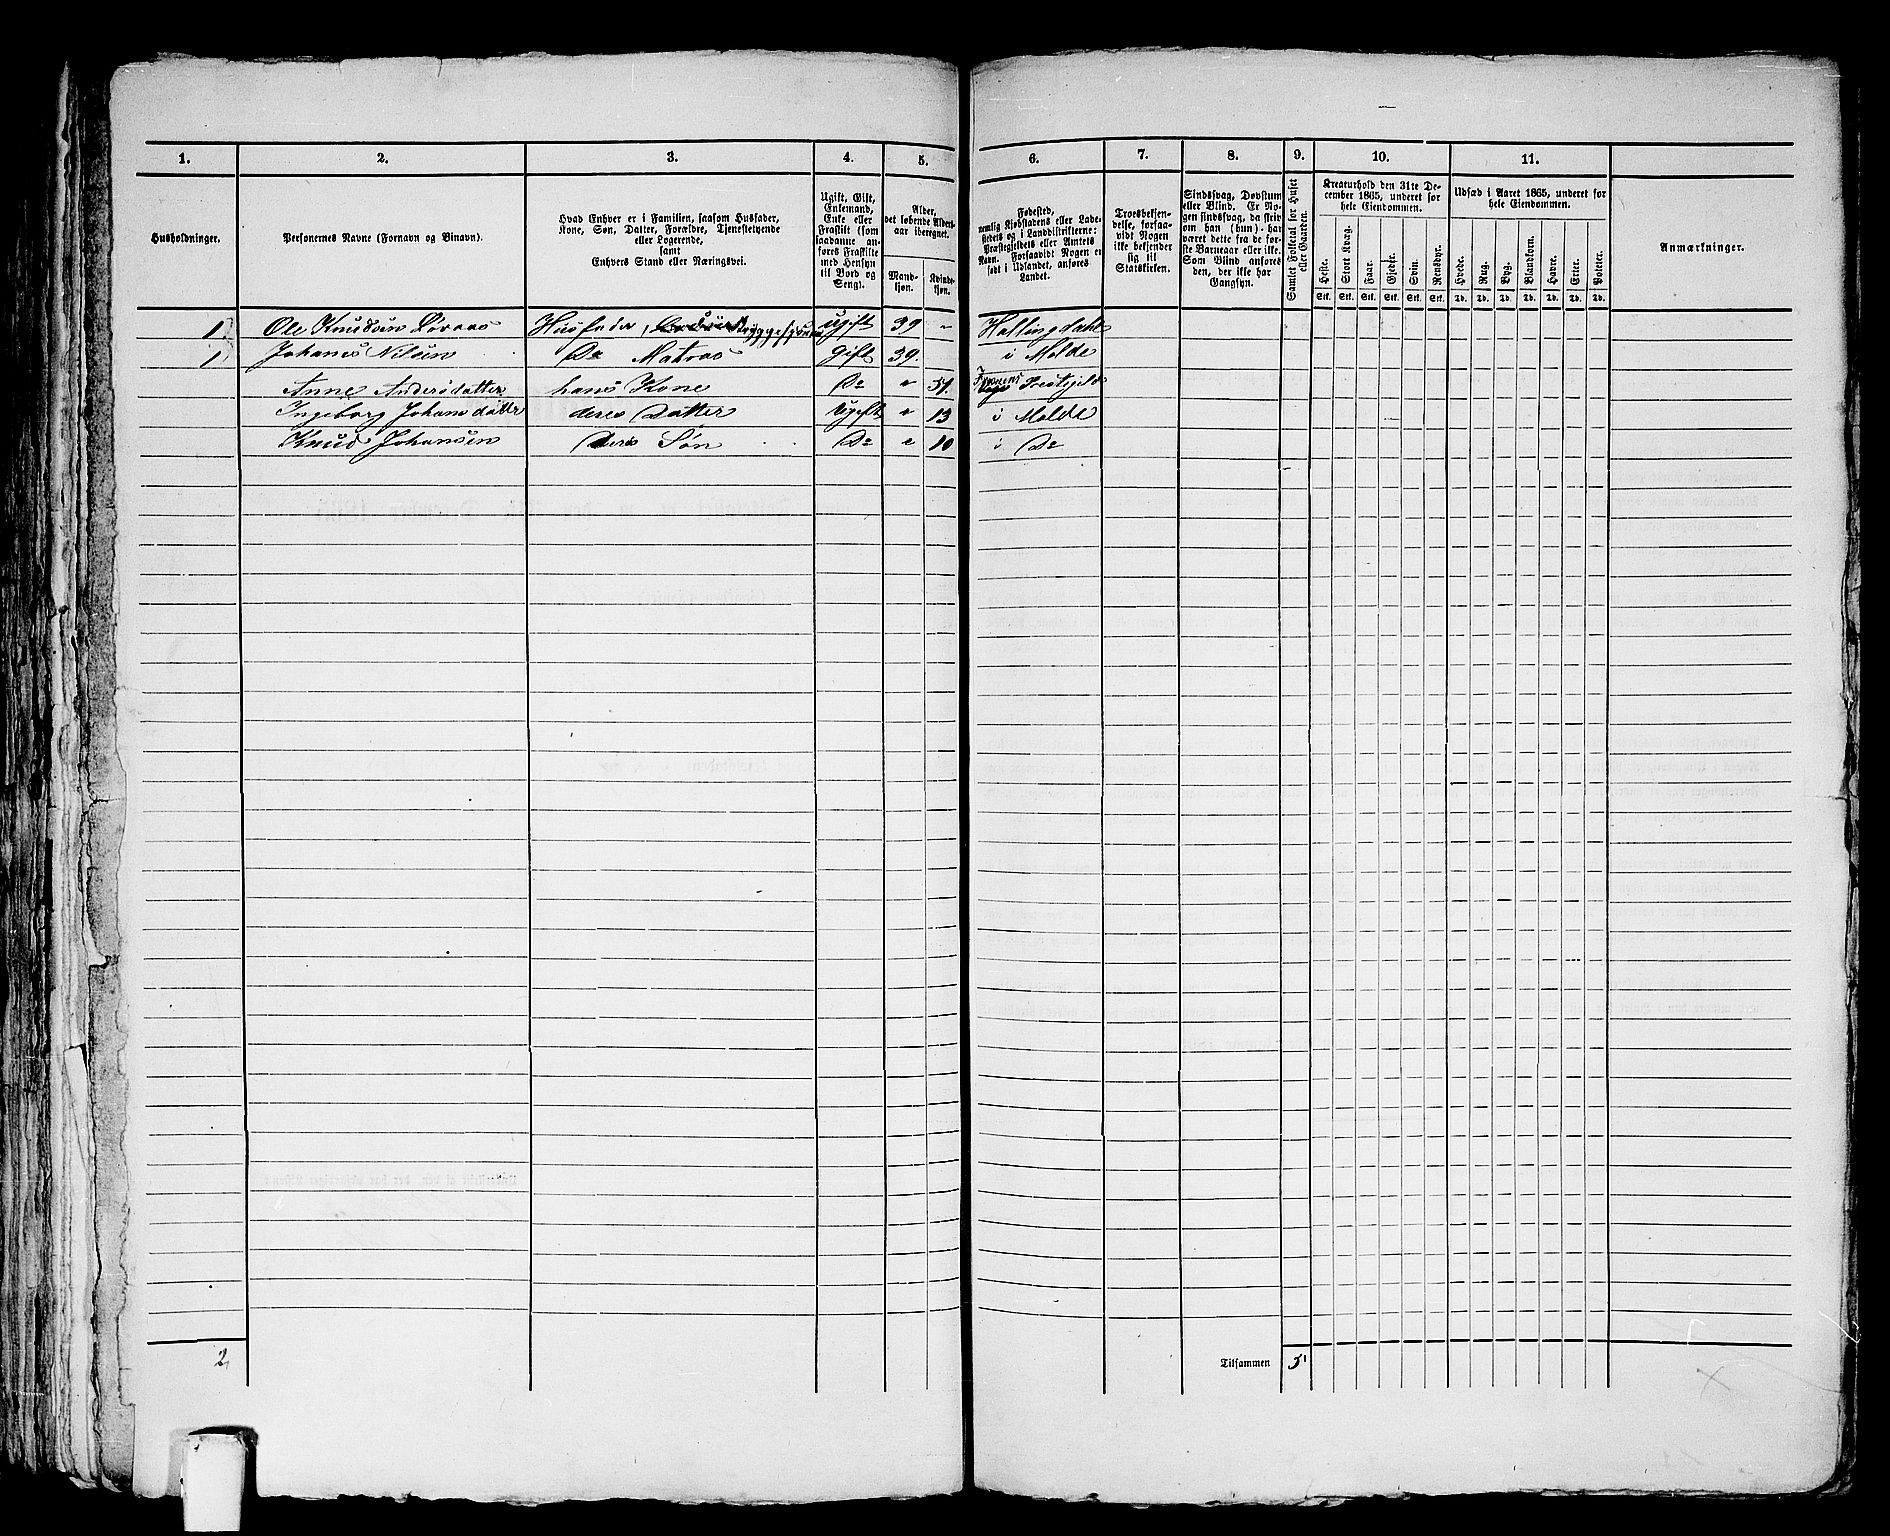 1. 2. 3. 4. 5. 6. 7. 8. 9. 10. 11.
Husholdninger.
Personernes Navne (Fornavn og Binavn).
Hvad Enhver er i Familien, saasom Husfader,
Kone, Søn, Datter, Forældre, Tjenestetyende
eller Logerende,
samt
Enhvers Stand eller Næringsvei.
Ugift, Gift,
Enkemand,
Enke eller
Fraskilt (som
saadanne an-
føres Fraskilte
med Hensyn
til Bord og
Seng).
Alder,
det løbende Alders-
aar iberegnet.
Mand-
kjøn.
Kvinde-
kjøn.
Fødested,
nemlig Kjøbstadens eller Lade-
stedets og i Landdistrikterne:
Præstegjeldets eller Amtets
Navn. Forsaavidt Nogen er
født i Udlandet, anføres
Landet.
Troesbekjen-
delse, forsaa-
vidt Nogen
ikke bekjender
sig til
Statskirken.
Sindssvag, Døvstum
eller Blind. Er No-
gen sindssvag, da skriv
om han (hun) har
været dette fra de før-
ste Barneaar eller ikke.
Som Blind anføres
den, der ikke har
Gangsyn.
Samlet Folketal for Huset
eller Gaarden.
Kreaturhold den 31te De-
cember 1865, underet for
hele Eiendommen.
Heste. Stort Kvæg. Faar. Gjeder. Svin. Rensdyr.
Stk. Stk. Stk. Stk. Stk. Stk.
Udsæd i Aaret 1865, underet for
hele Eiendommen.
Hvede. Rug. Byg. Blandkorn. Havre. Erter. Poteter.
Td. Td. Td. Td. Td. Td. Td.
Anmærkninger.
1 Ole Knudsen Husfader, Bryggesjouer Ugift 39 " Hallingdahl
1 Johanes Nilsen Do Matros Gift 39. i Molde
Anne Andersdatter hans Kone Do " 51. Præstegjeld
Ingeborg Johansdatter deres Datter Ugift " 13 i Molde
Knud Johansen Deres Søn Do " 10 i Do
2 Tilsammen 5